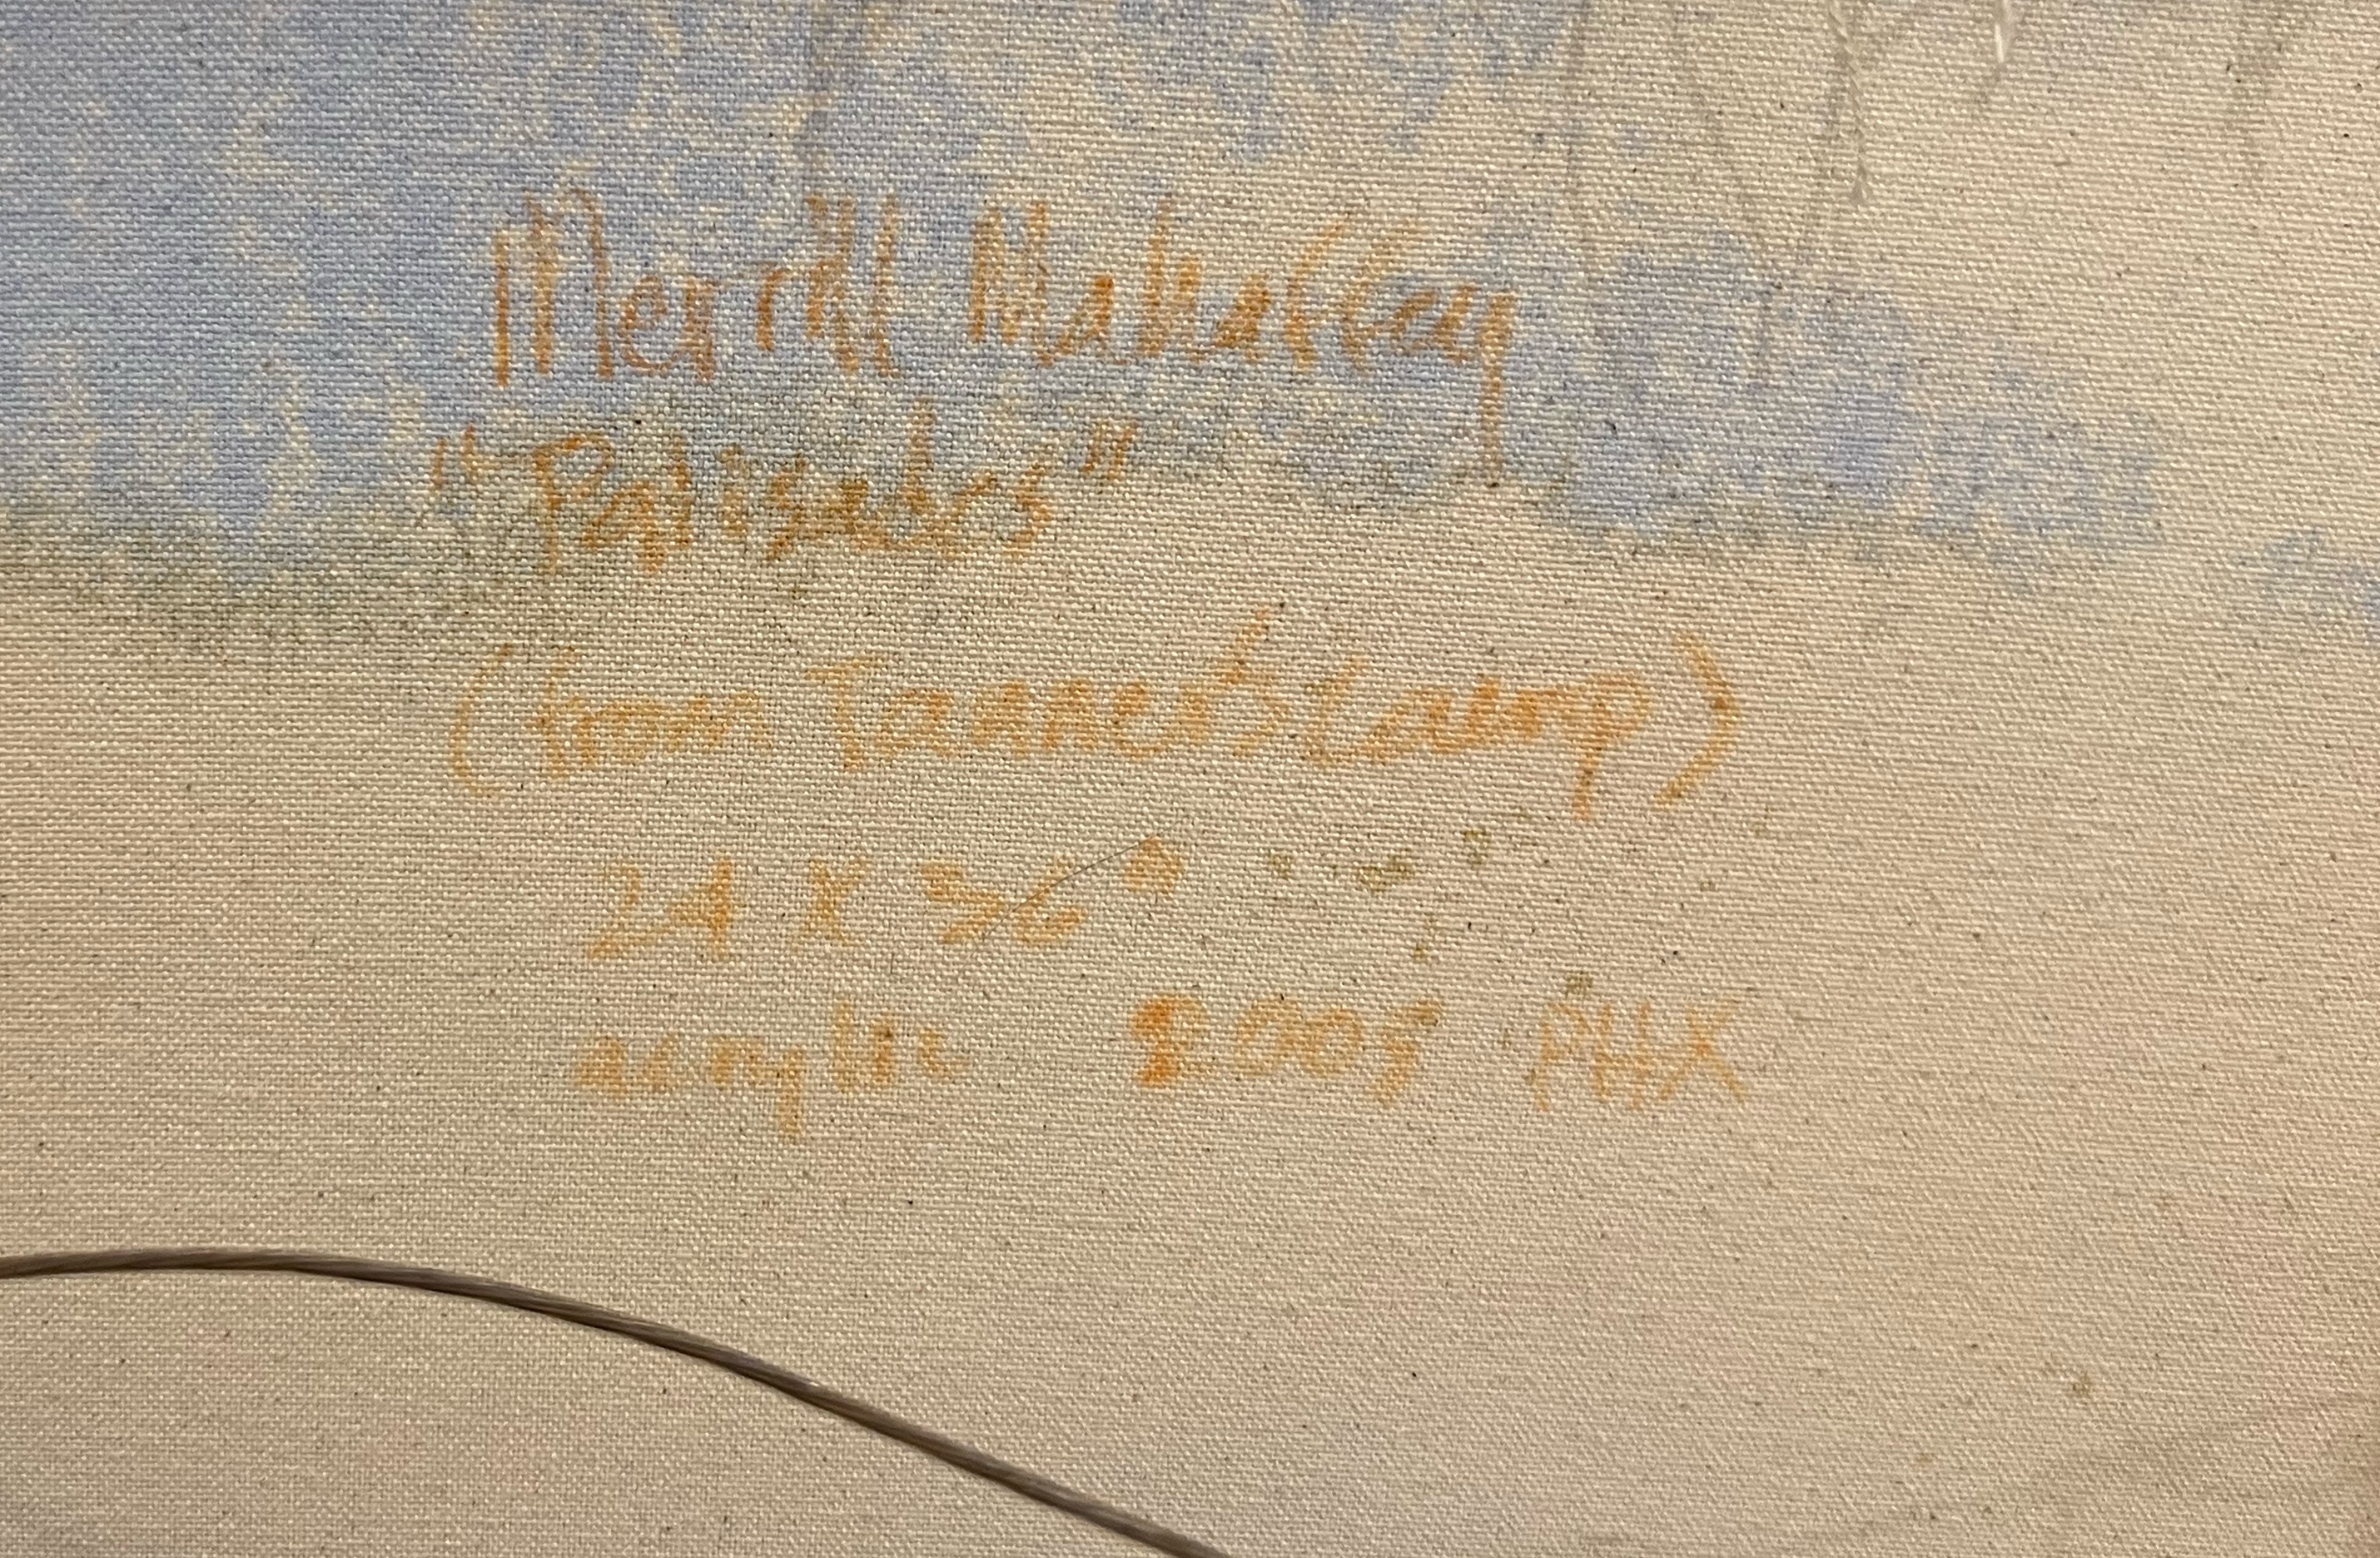 Merrill Mahaffey
"Palisades"
(from Tanner's Camp)
24 X 36"
acrylic 2005 PHX